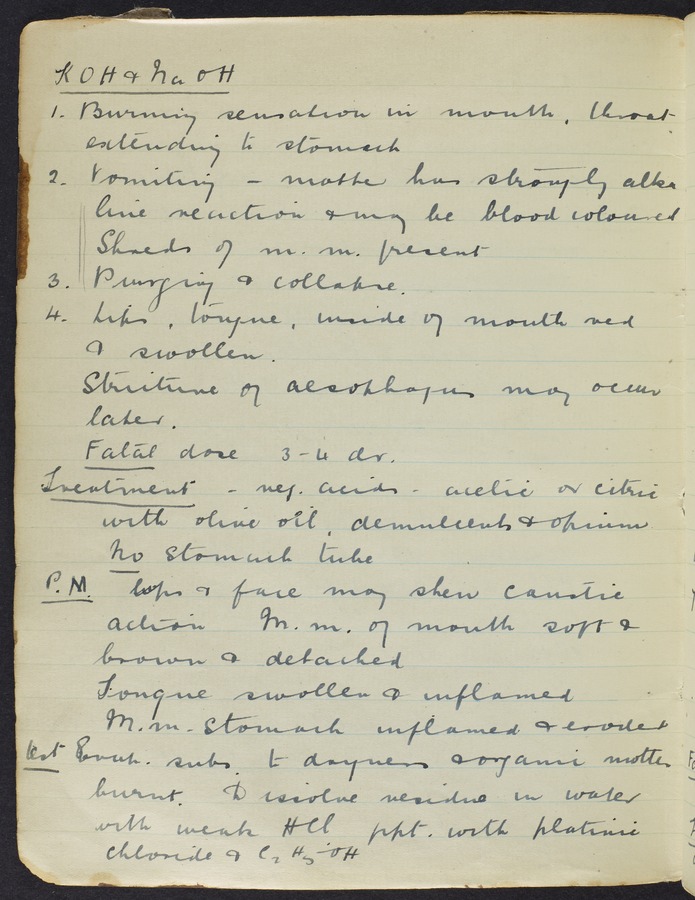 KOH & NaOH
1. Burning sensation in mouth, throat
extending to stomach
2. Vomiting - matter has strongly alka
line reaction & may be blood coloured
Shreds of m. m. present
3. Purging & collapse.
4. Lips, tongue, inside of mouth red
& swollen.
Stricture of aesophagus may occur
later.
Fatal dose 3-4 dr.
Treatment - veg. acids - acetic or citric
with olive oil, demulcents & opium
No stomach tube
P.M. lips & face may shew caustic
action M.m. of mouth soft &
brown & detached
Tongue swollen & inflamed
M.m. stomach inflamed & eroded
Test Evap. subs. to dryness & organic matter
burnt. Dissolve residue in water
with weak HCl ppt. with platinic
chloride & C2H5OH